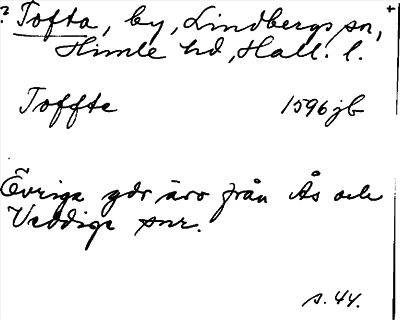 ? Tofta, by, Lindbergs sn, +
Himle hd, Hall. l.
Toffte 1596 jb
Övriga gdr äro från Ås och
Veddige snr.
s. 44.